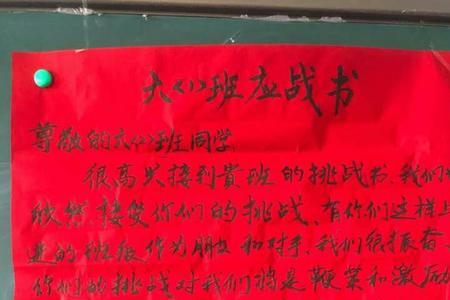 六〈1〉班应战书
尊敬的六班同学
很高兴接到貴班的挑战书、我们
欣然接受你们的挑战、有你们这样上
进的班级作为朋友和对手、我们很振奋、
你们的挑战对我们将是鞭策和激励